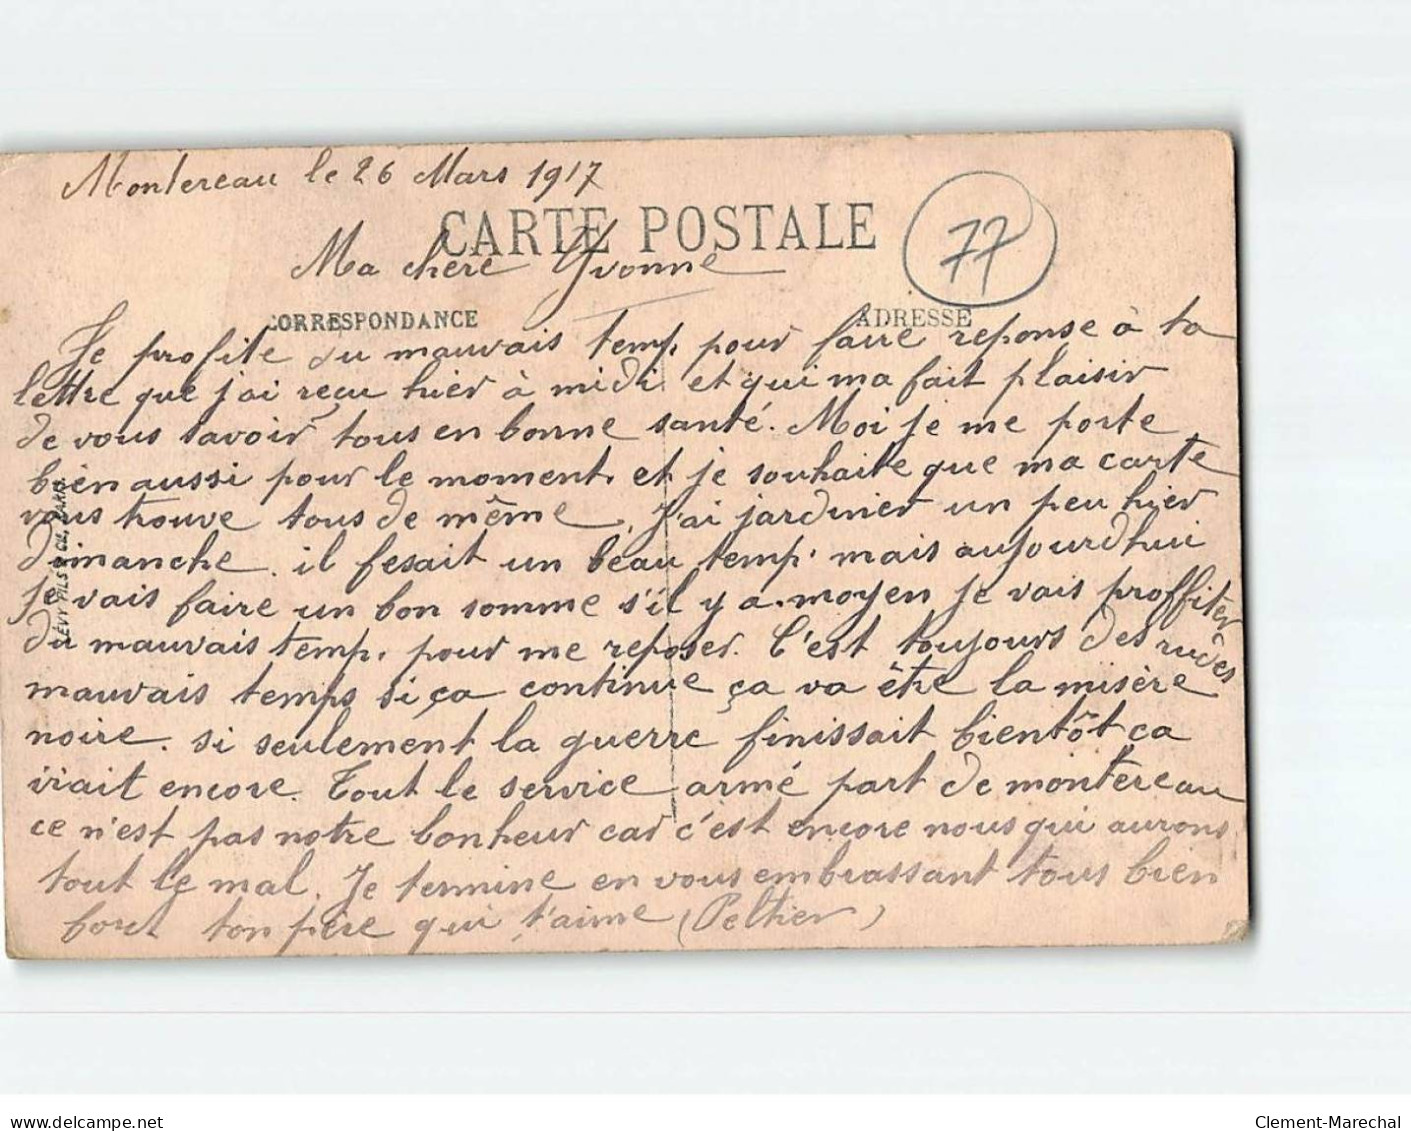 Montereau le 26 Mars 1917
CARTE POSTALE
77
Ma chère Yvonne
CORRESPONDANCE
ADRESSE
Je profite du mauvais temp, pour faire reponse à ta
lettre que j'ai reçu hier à midi et qui ma fait plaisir
de vous savoir tous en bonne santé. Moi je me porte
bien aussi pour le moment, et je souhaite que ma carte
vous trouve tous de même, J'ai jardiner un peu hier
dimanche. il fesait un beau temp, mais aujourdhui
je vais faire un bon somme s'il y a moyen je vais proffiter
du mauvais temp, pour me reposer. C'est toujours des rudes
mauvais temps si ça continue ça va être la misère
noire. si seulement la guerre finissait bientôt ça
irait encore. Tout le service armé part de montereau
ce n'est pas notre bonheur car c'est encore nous qui aurons
tout le mal. Je termine en vous embrassant tous bien
fort ton père qui t'aime (Peltier)
LÉVY FILS & CIE, PARIS
delcampe.net
Clement-Marechal